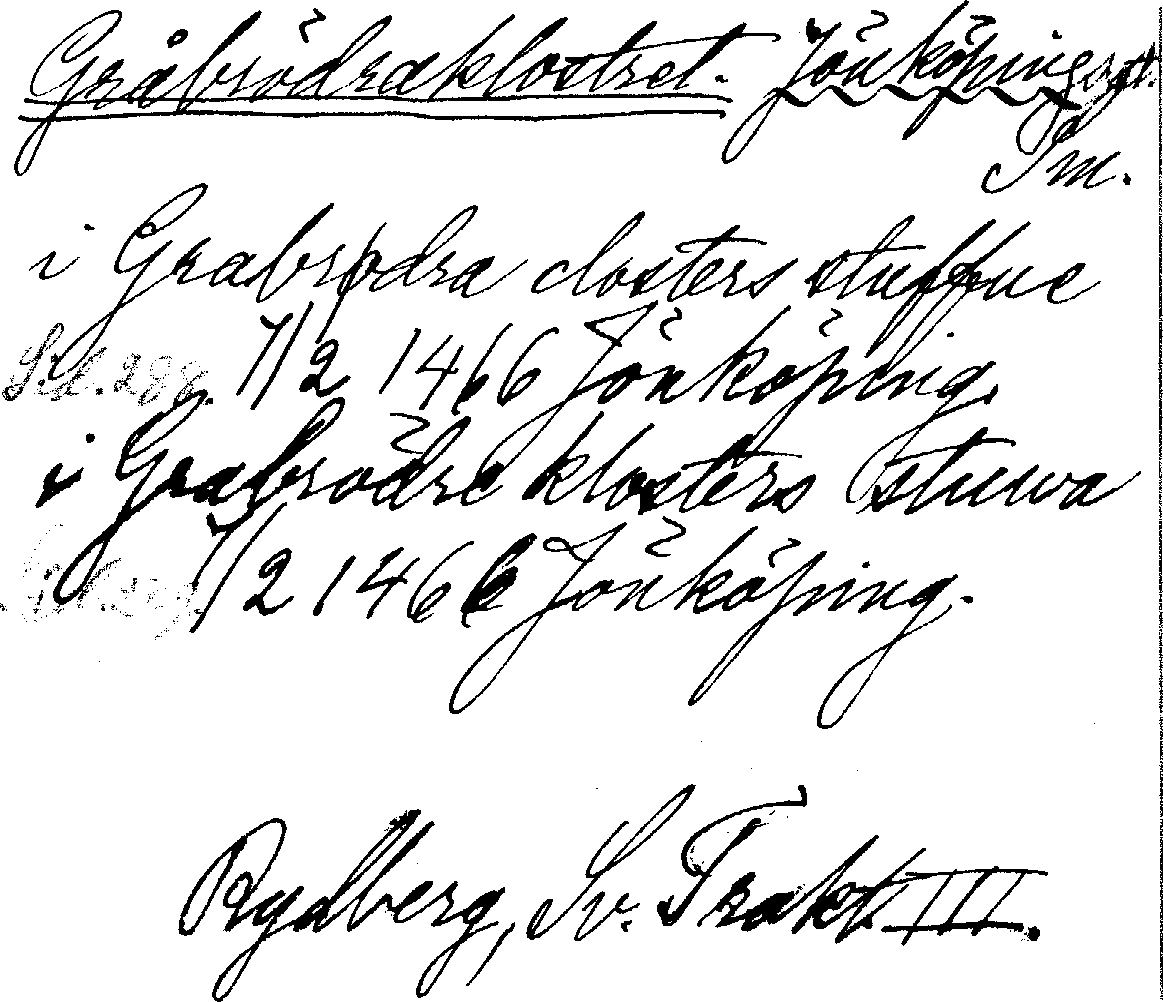 Gråbrödraklostret. Jönköping
Sm.
i Grabrødra closters stuffue
7/2 1466 Jönköping.
i Grabrödre klosters stuwa
7/2 1466 Jönköping.
Rydberg, Sv. Trakt. III.